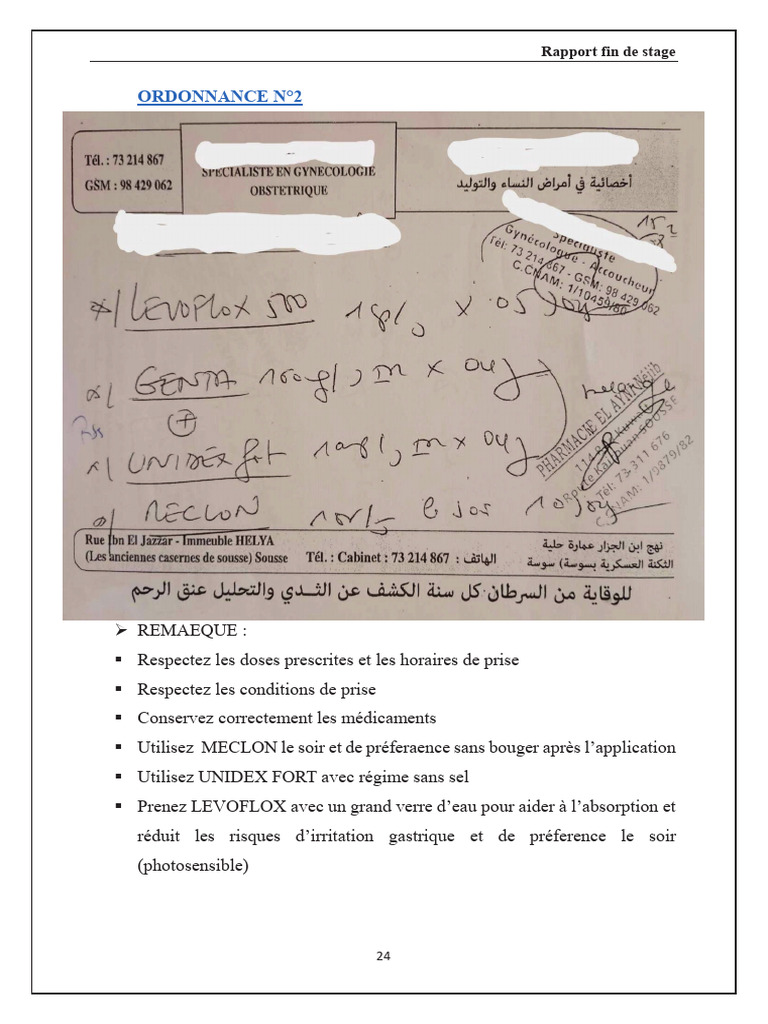 Rapport fin de stage
ORDONNANCE N°2
Tél. : 73 214 867
GSM : 98 429 062
SPECIALISTE EN GYNECOLOGIE
OBSTETRIQUE
أخصائية في أمراض النساء والتوليد
Spécialiste
Gynécologue - Accoucheur
Tél: 73 214 867 - GSM: 98 429 062
C.CNAM: 1/10459/80
LEVOFLOX 500 1 x 05 j
GENTA 160 , IM x 04 j
+
UNIDEX fort , IM x 04 j
MECLON le soir 10 j
PHARMACIE EL AYNI Néjib
Route Kairouan SOUSSE
Tél: 73 311 676
C.CNAM: 1/9879/82
Rue Ibn El Jazzar - Immeuble HELYA
(Les anciennes casernes de sousse) Sousse
Tél. : Cabinet : 73 214 867 : الهاتف
نهج ابن الجزار عمارة حلية
الثكنة العسكرية بسوسة) سوسة
للوقاية من السرطان كل سنة الكشف عن الثدي والتحليل عنق الرحم
➢ REMAEQUE :
▪ Respectez les doses prescrites et les horaires de prise
▪ Respectez les conditions de prise
▪ Conservez correctement les médicaments
▪ Utilisez MECLON le soir et de préferaence sans bouger après l’application
▪ Utilisez UNIDEX FORT avec régime sans sel
▪ Prenez LEVOFLOX avec un grand verre d’eau pour aider à l’absorption et
réduit les risques d’irritation gastrique et de préference le soir
(photosensible)
24